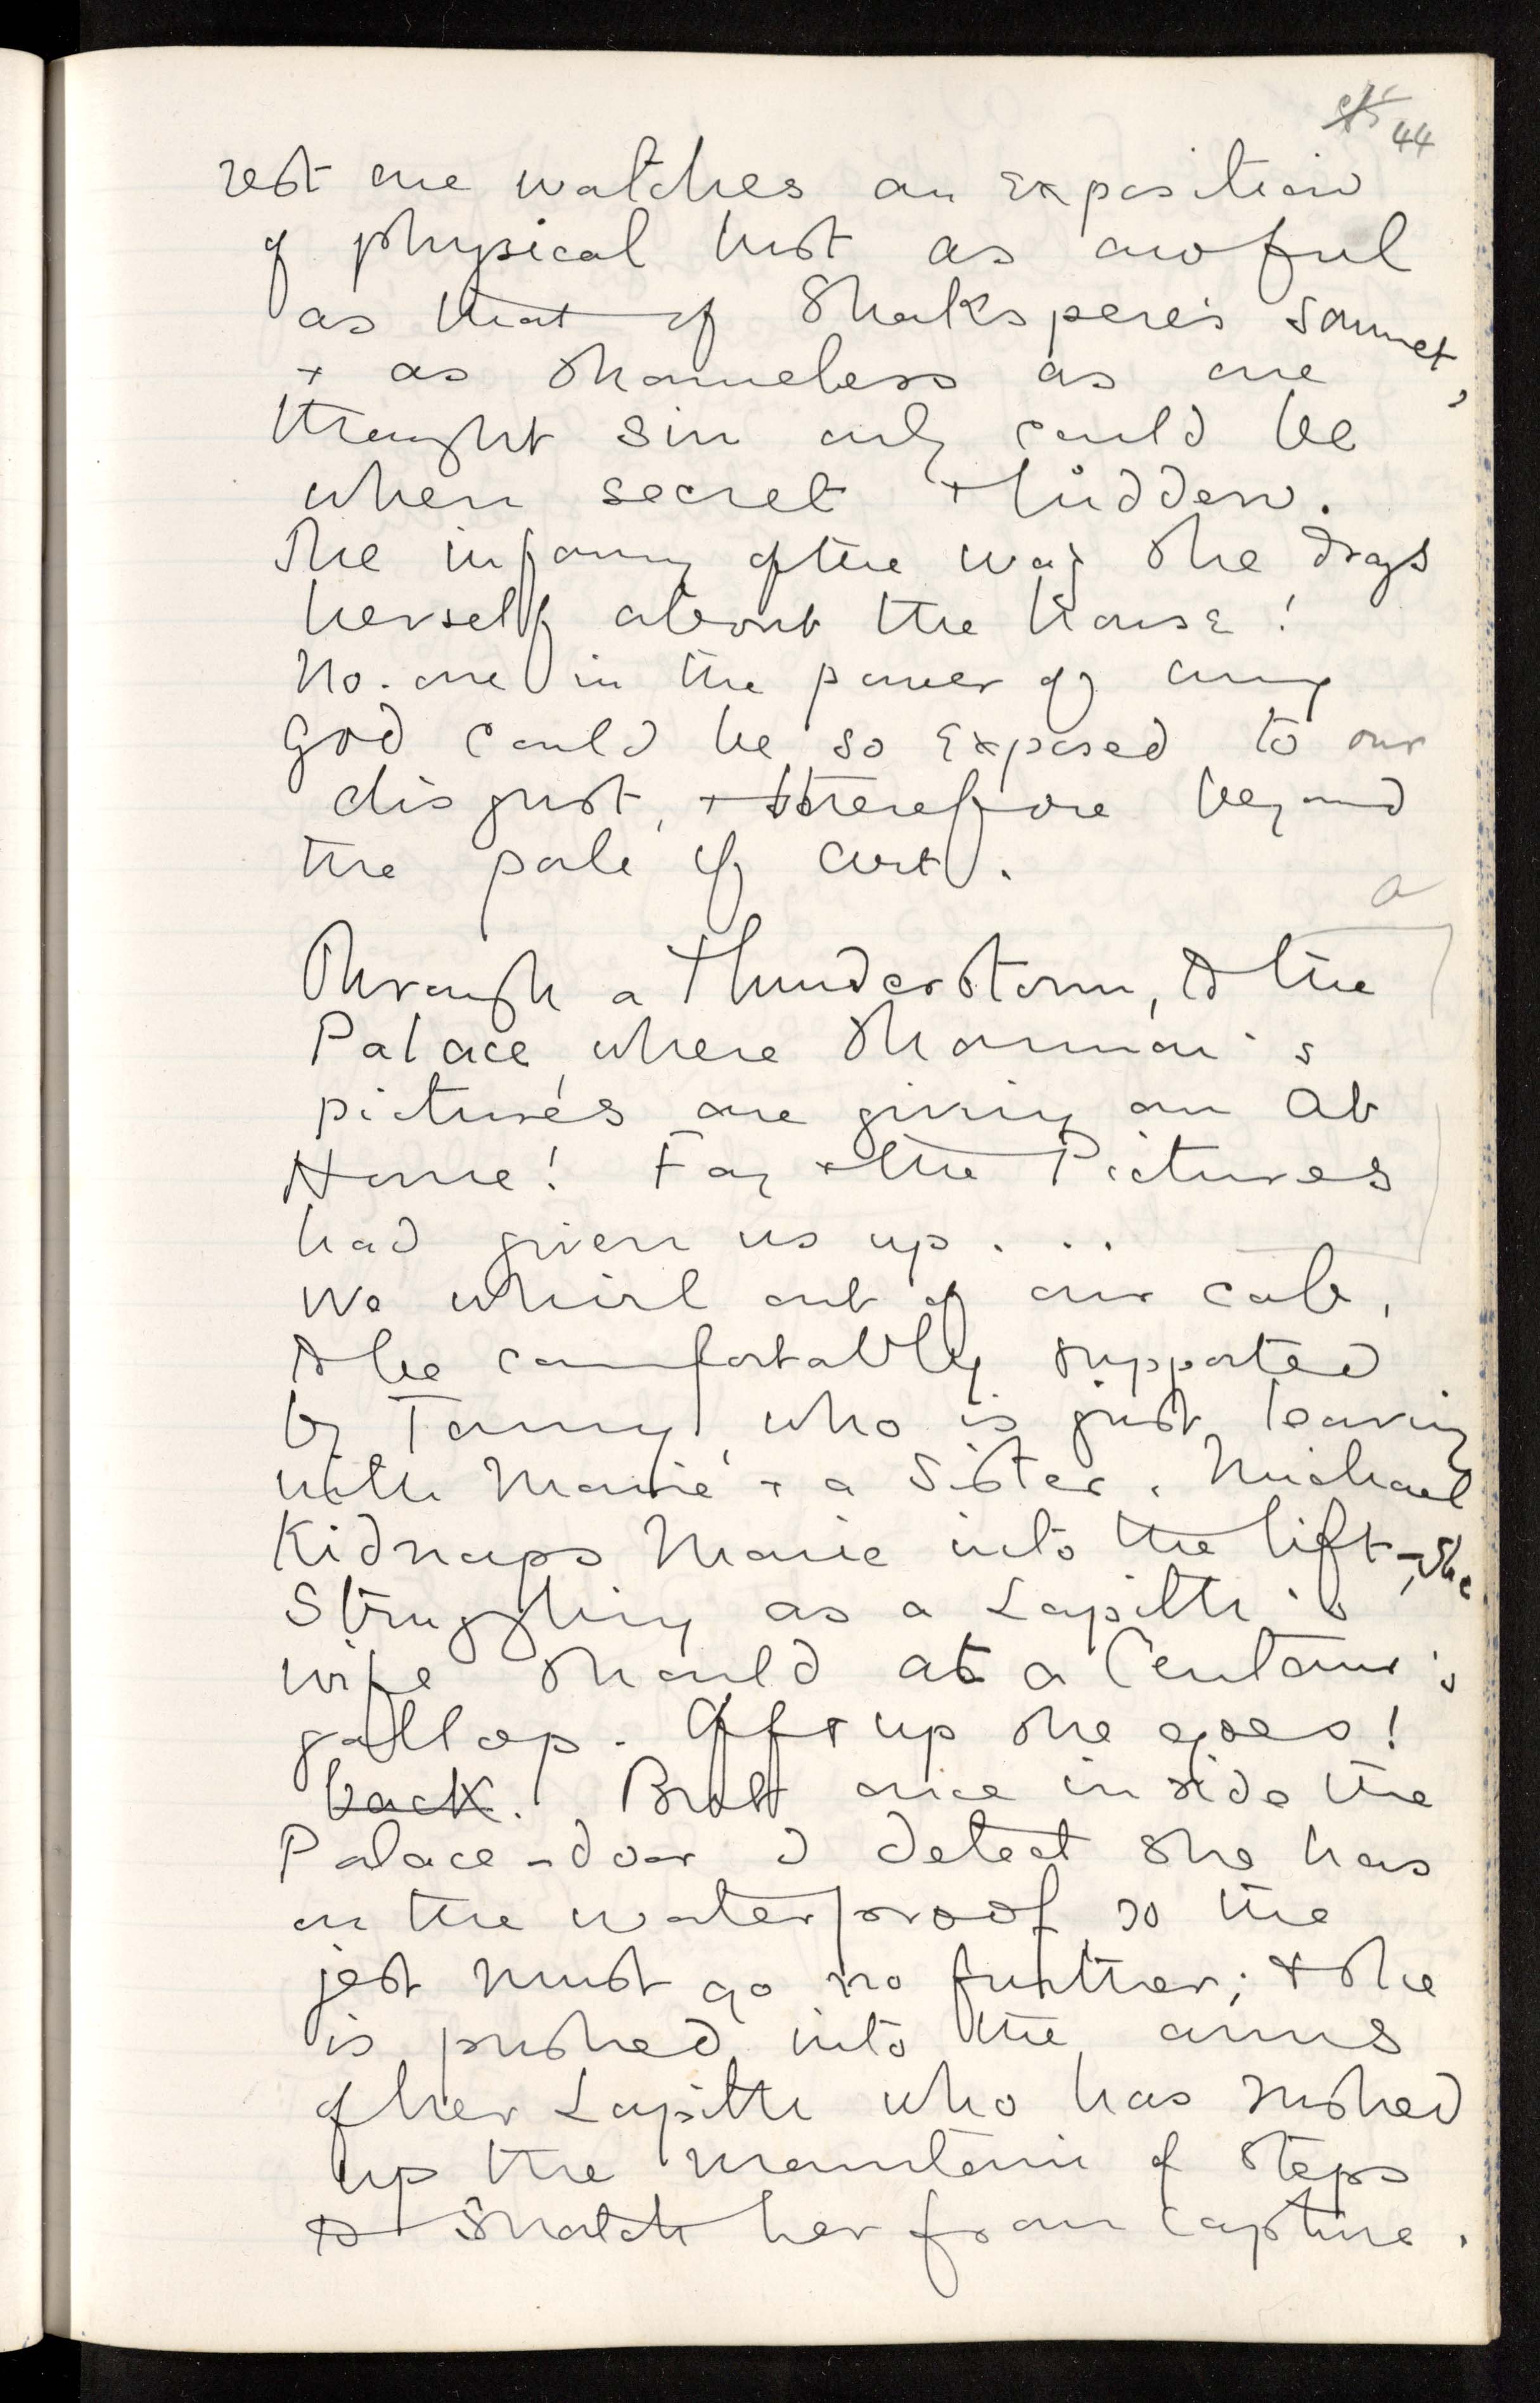 44
rest one watches an exposition
of physical lust as awful
as that of Shakspere's Sonnet,
+ as shameless as one
thought sin only could be
when secret + hidden.
The infamy of the way she drags
herself about the house!
No. one in the power of any
god could be so exposed to our
disgust, + therefore beyond
the pale of art.
a
Through a Thunderstorm, to the
Palace, where Shannon's
pictures are giving an At
Home! Fay + the Pictures
had given us up . . .
We whirl out of our cab,
to be comfortably supported
by Tommy, who is just leaving
with Marie + a Sister. Michael
Kidnaps Marie into the lift -, she
Struggling as a Lapith's
wife should at a Centaur's
gallop. Off + up she goes!
back. But once inside the
Palace-door I detect she has
on the waterproof, so the
jest must go no further; + she
is pushed into the arms
of her Lapith who has rushed
up the mountain of steps
to snatch her from capture.